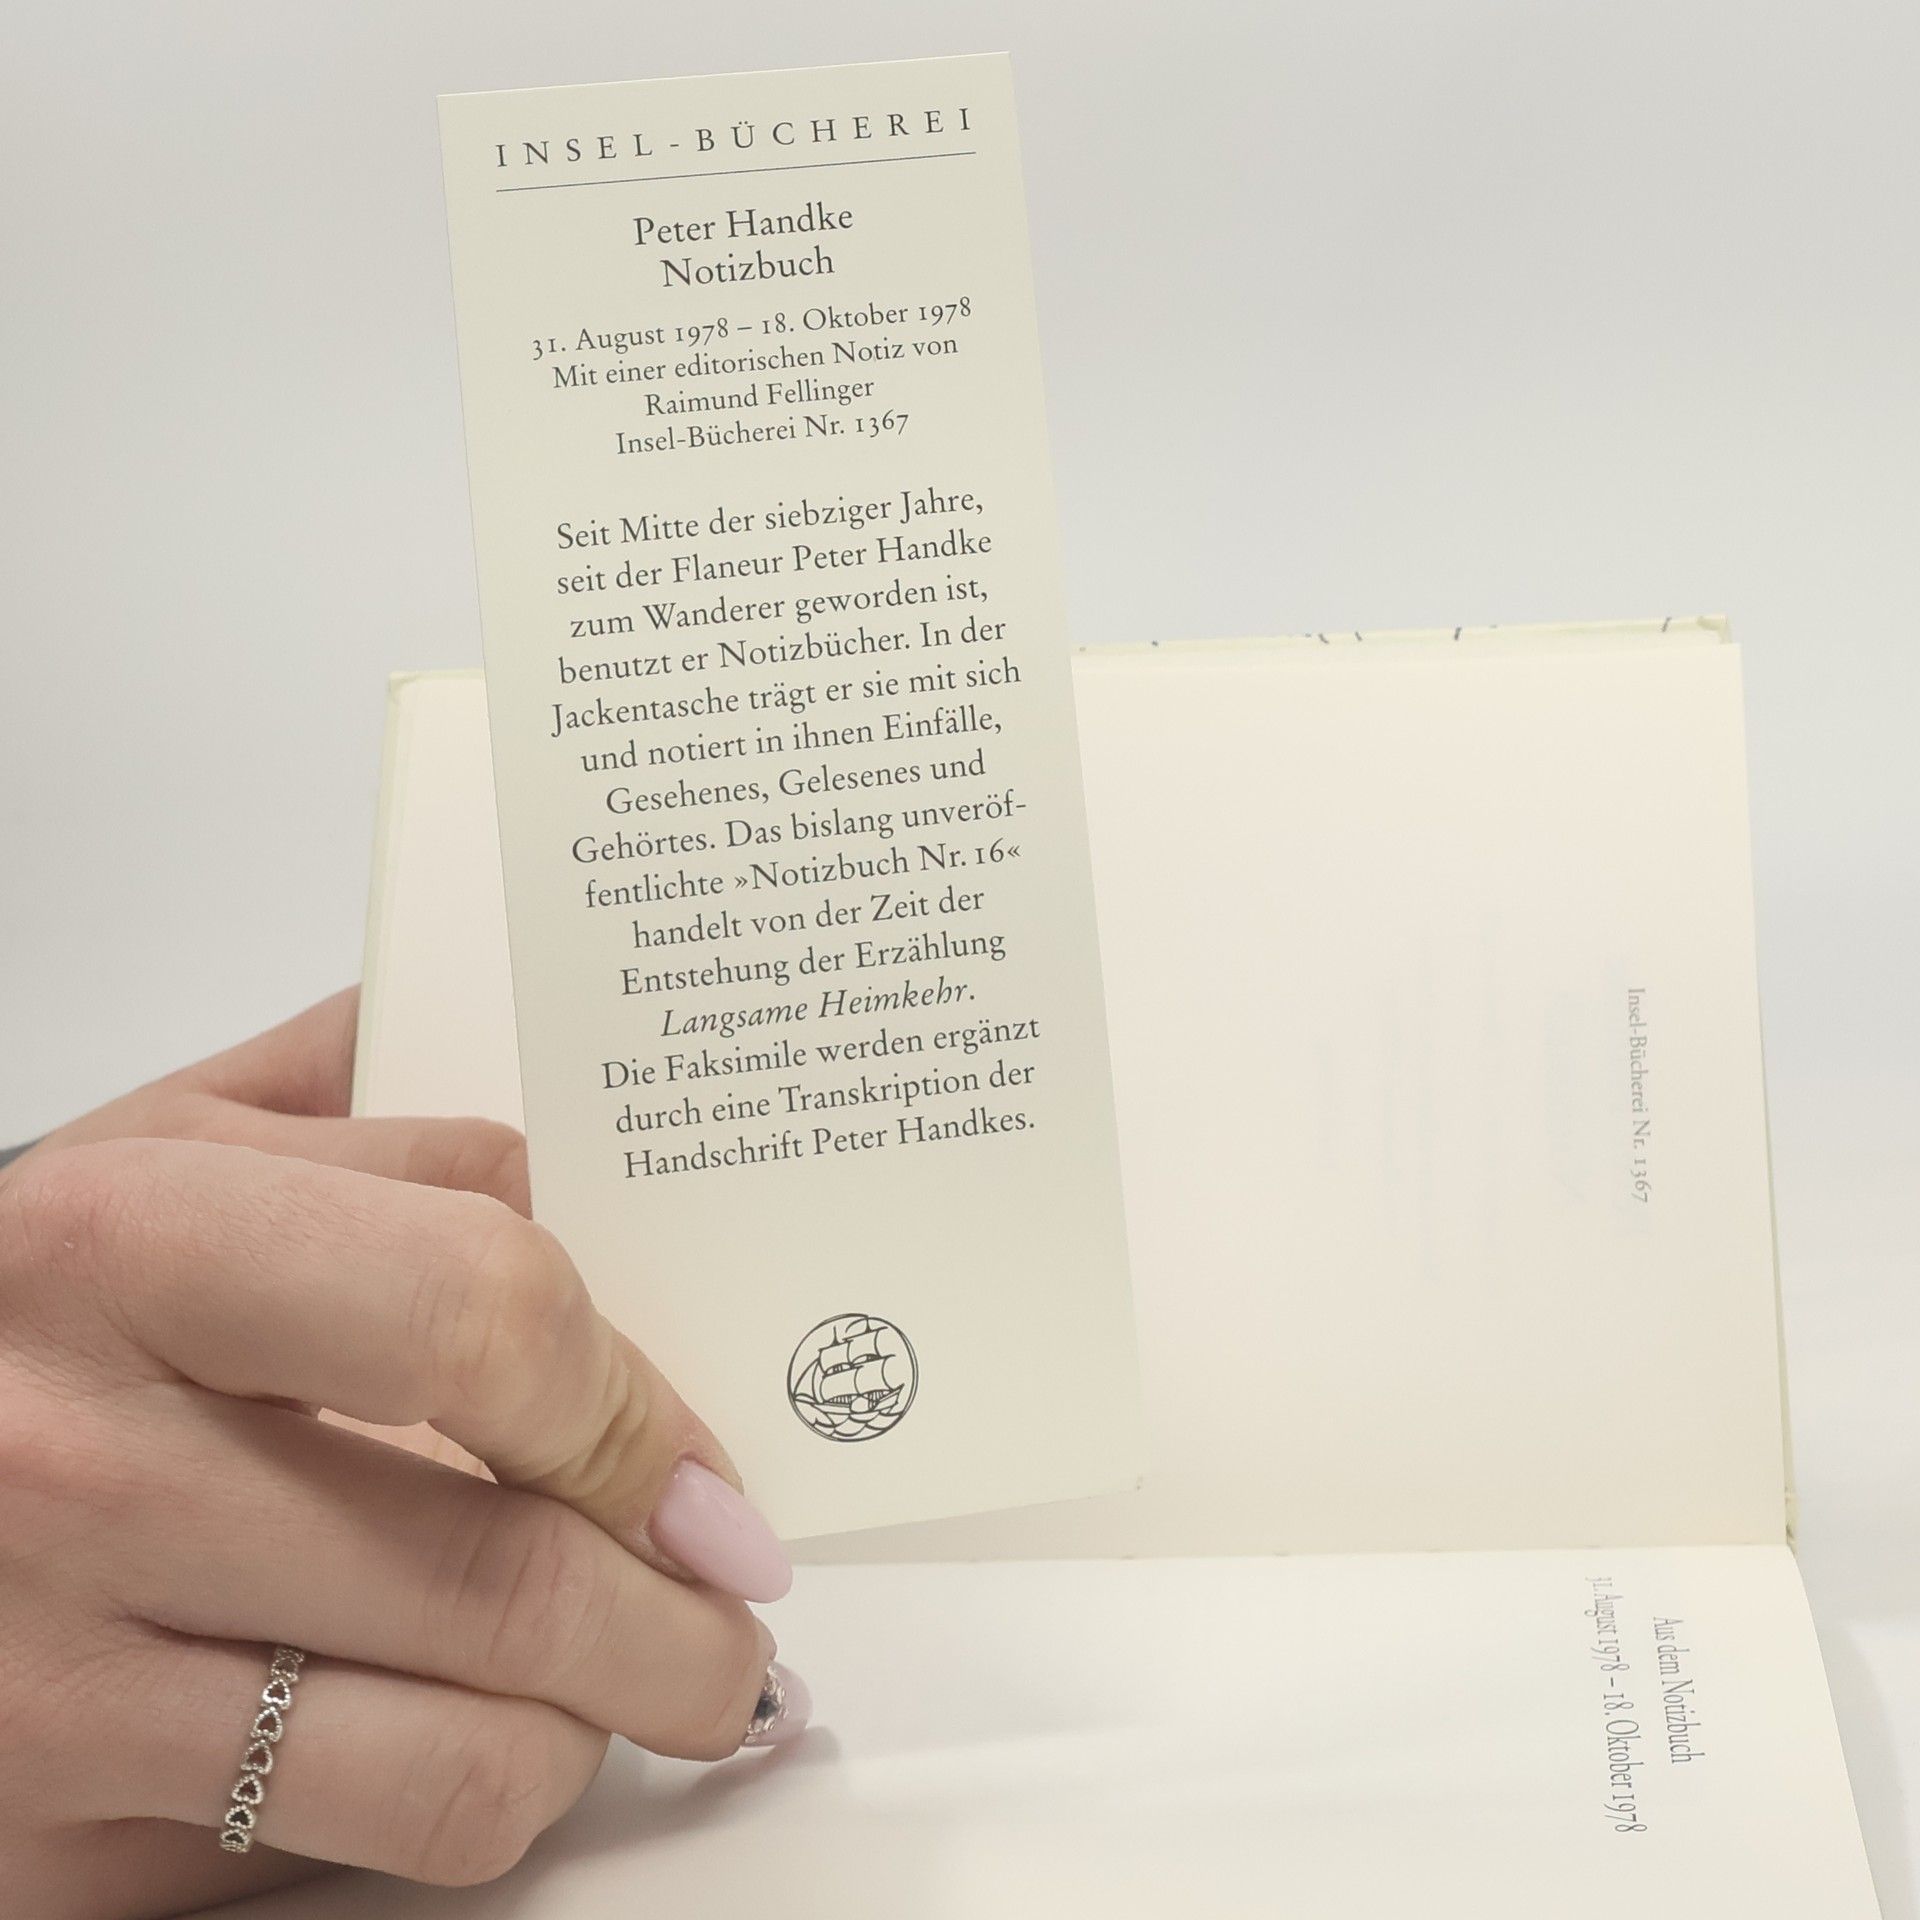 INSEL-BÜCHEREI
Peter Handke
Notizbuch
31. August 1978 – 18. Oktober 1978
Mit einer editorischen Notiz von
Raimund Fellinger
Insel-Bücherei Nr. 1367
Seit Mitte der siebziger Jahre,
seit der Flaneur Peter Handke
zum Wanderer geworden ist,
benutzt er Notizbücher. In der
Jackentasche trägt er sie mit sich
und notiert in ihnen Einfälle,
Gesehenes, Gelesenes und
Gehörtes. Das bislang unveröf-
fentlichte »Notizbuch Nr. 16«
handelt von der Zeit der
Entstehung der Erzählung
Langsame Heimkehr.
Die Faksimile werden ergänzt
durch eine Transkription der
Handschrift Peter Handkes.
Insel-Bücherei Nr. 1367
Aus dem Notizbuch
31. August 1978 – 18. Oktober 1978